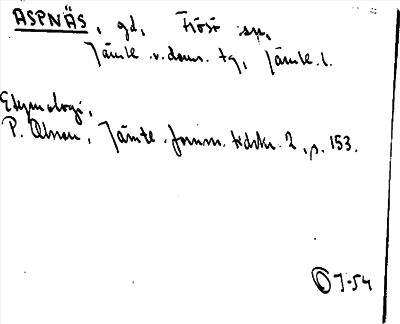 ASPNÄS, gd, Frösö sn,
Jämtl. v. doms. tg, Jämtl. l.
Etymologi,
P. Olsson, Jämtl. fornm. tidskr. 2, p. 153.
J-54